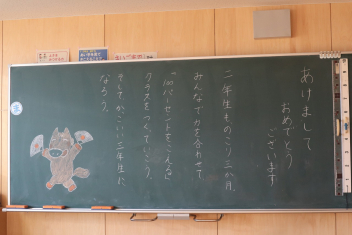 あけまして
おめでとう
ございます
二年生ものこり三か月。
みんなで力を合わせて
「100パーセントをこえる」
クラスをつくっていこう。
そしてかっこいい三年生に
なろう。